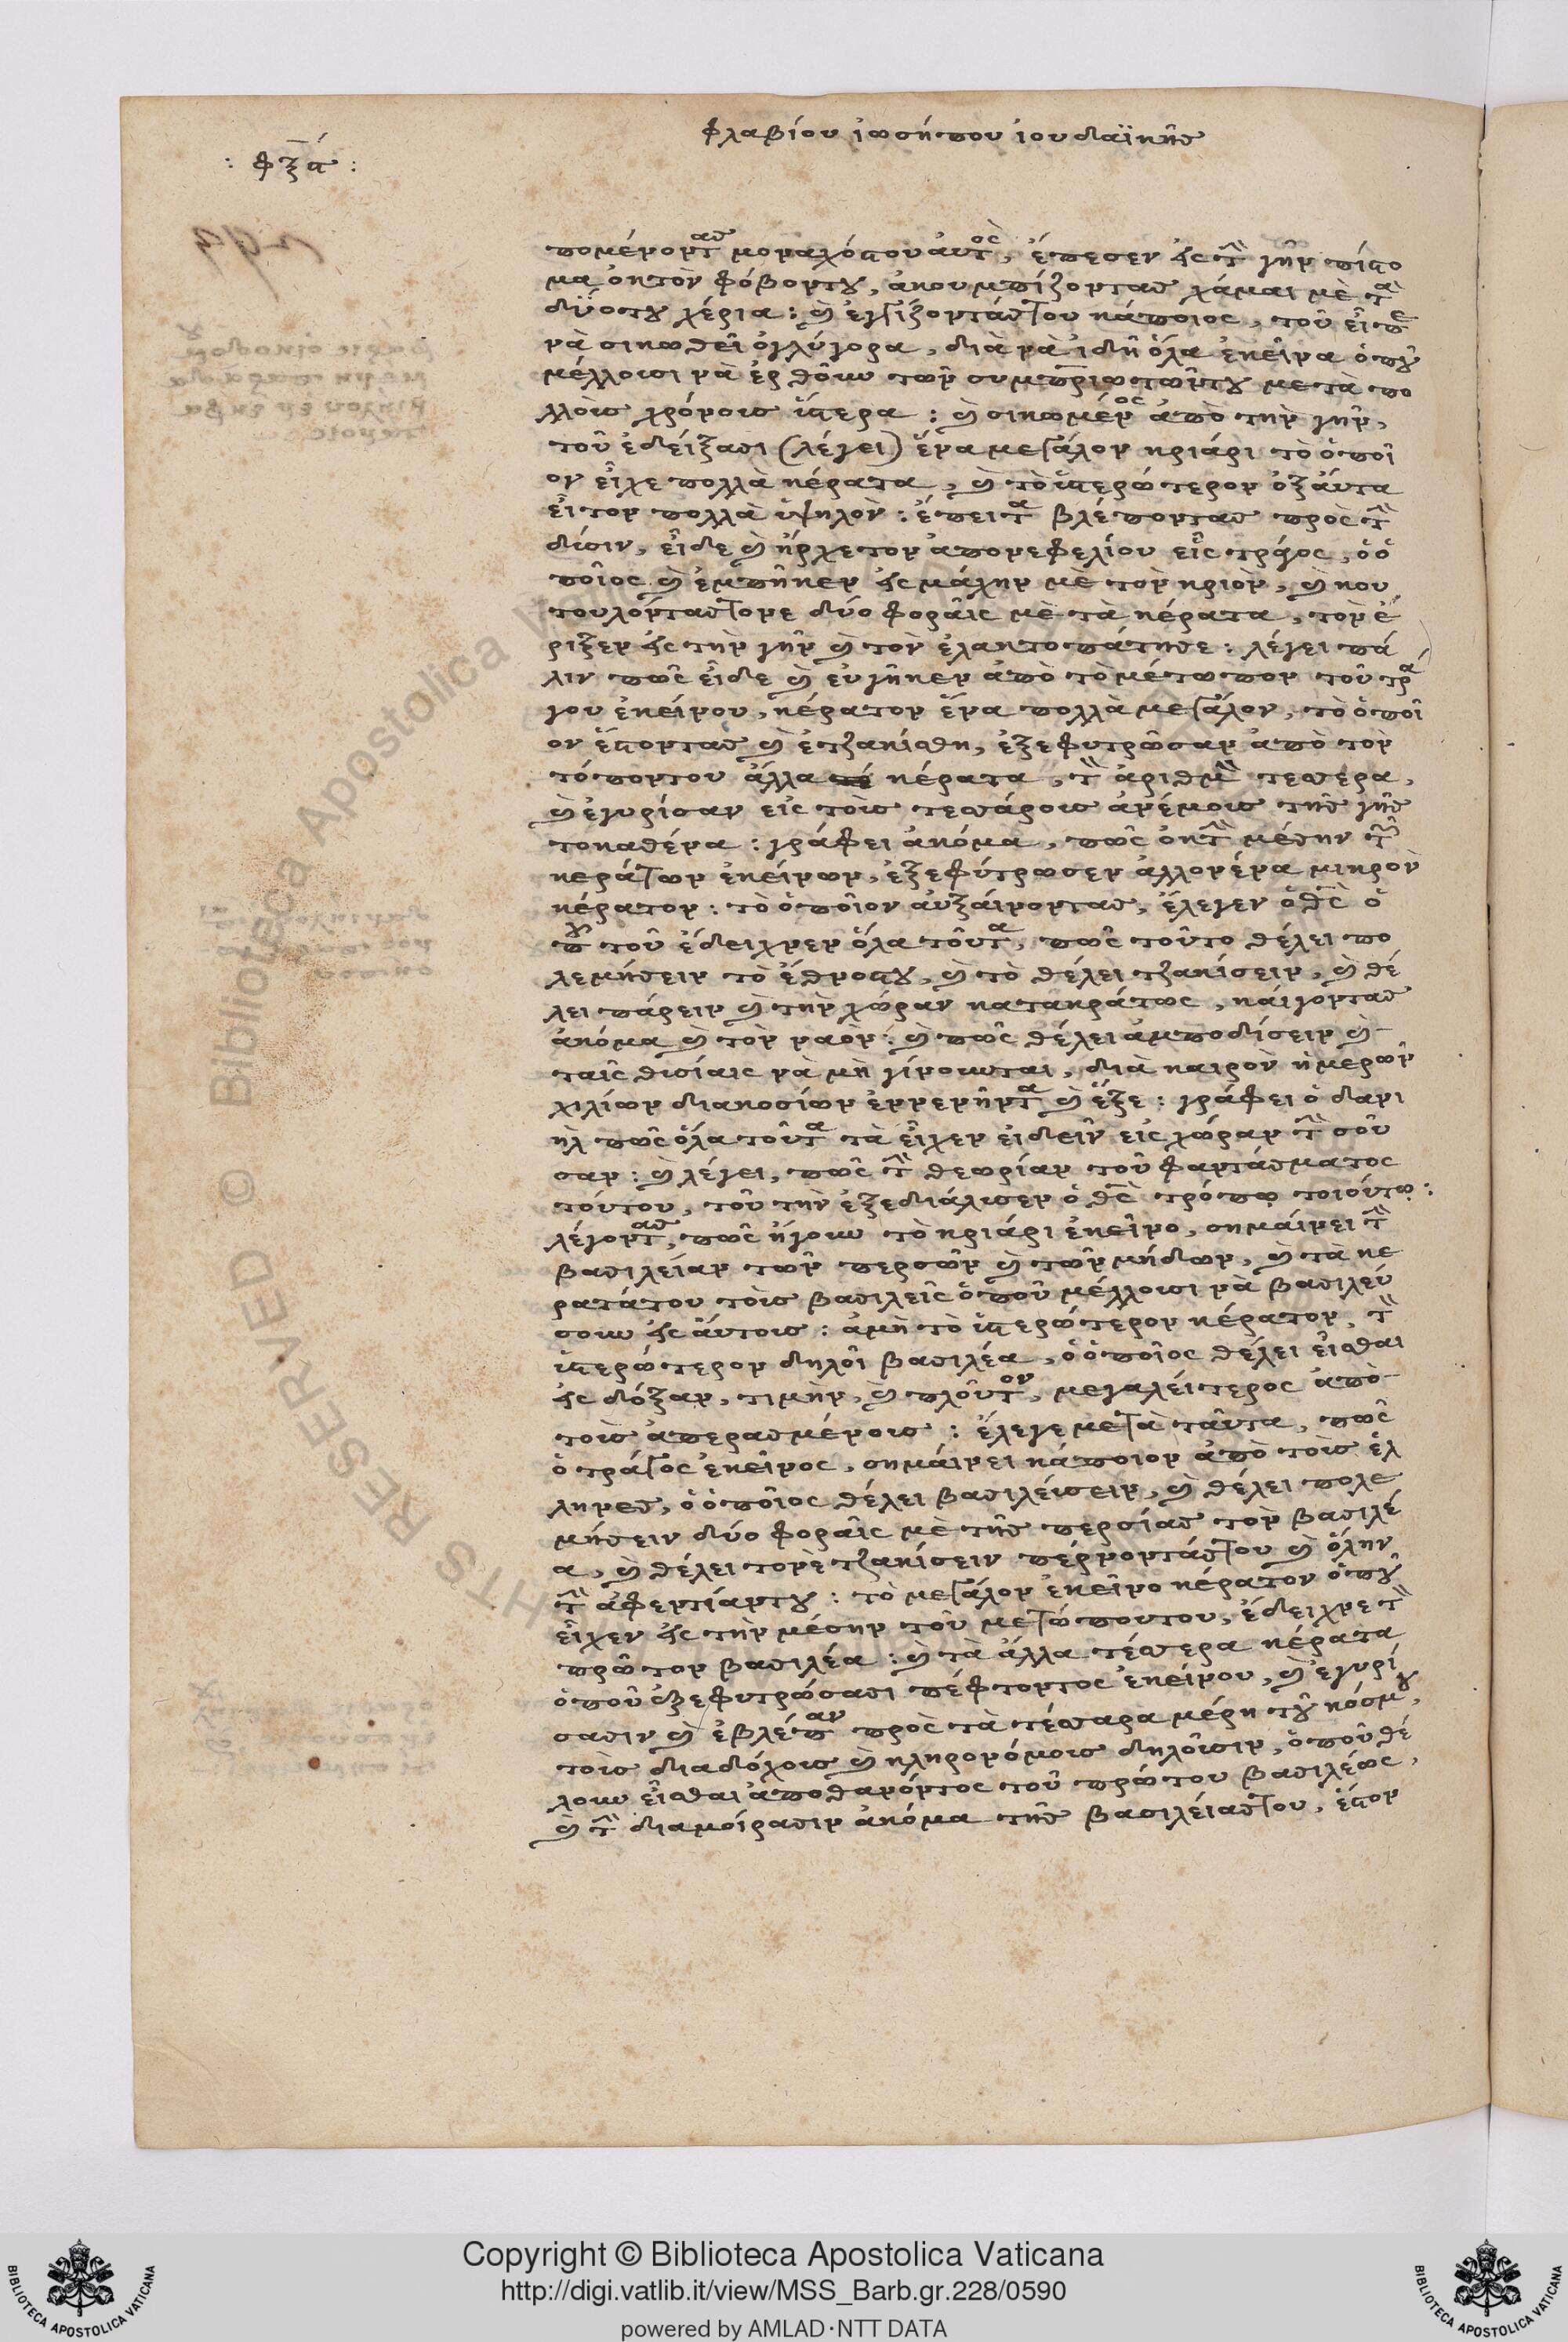 φλαβίου ἰωσήπου ἰουδαϊκῆς
: φξα΄ :
πομένοντας μοναχόςου αὐτὸς, ἔπεσεν εἰς τὴν γῆν πίστο
μα ἐκ τὸν φόβοντου, ἀκουμπίζοντας χάμαι μὲ τὰ
δύοτου χέρια : καὶ ἐγγίζοντάς του κάποιος, τοῦ εἶπε
νὰ σηκωθεῖ ὀγλύγορα, διὰ νὰ ἰδῆ ὅλα ἐκεῖνα ὁποῦ
μέλλουσι νὰ ἐρθοῦν τῶν συμπατριωτῶντου μετὰ πο
λλοὺς χρόνους ὕστερα : καὶ σηκωμένος ἀπὸ τὴν γῆν,
τοῦ ἐδείξασι (λέγει) ἕνα μεγάλον κριάρι τὸ ὁποῖ
ον εἶχε πολλὰ κέρατα, καὶ τὸ ὑστερώτερον ἐξ αὐτὰ
εἶτον πολλὰ ὑψηλὸν : ἔπειτα βλέποντας πρὸς τὴν
δύσιν, εἶδε καὶ ἤρχετον ἀπονεφελίου εἷς τράγος, ὁ ὁ
ποῖος καὶ ἐμπῆκεν εἰς μάχην μὲ τὸν κριὸν, καὶ κου
τουλόντας τονε δύο φοραῖς μὲ τὰ κέρατα, τὸν ἔ
ριξεν εἰς τὴν γῆν καὶ τὸν ἐλακτοπάτησε : λέγει πά
λιν πῶς εἶδε καὶ εὐγῆκεν ἀπὸ τὸ μέτωπον τοῦ τρά
γου ἐκείνου, κέρατον ἕνα πολλὰ μεγάλον, τὸ ὁποῖ
ον ἕστοντας καὶ ἐτζακίσθη, ἐξεφυτρῶσαν ἀπὸ τὸν
τόποντου ἄλλα κέρατα, τὸν ἀριθμὸν τέσσερα,
καὶ ἐγυρίσαν εἰς τοὺς τεσσάρους ἀνέμους τῆς γῆς
τοκαθένα : γράφει ἀκόμα, πῶς ἐκ τὴν μέσην τῶν
κεράτων ἐκείνων, ἐξεφύτρωσεν ἄλλον ἕνα μικρὸν
κέρατον : τὸ ὁποῖον αὐξαίνοντας, ἔλεγεν ὁ θεὸς ὁ
ποῦ τοῦ ἔδειχνεν ὅλα τοῦτα, πῶς τοῦτο θέλει πο
λεμήσειν τὸ ἔθνοςτου, καὶ τὸ θέλει τζακίσειν, καὶ θέ
λει πάρειν καὶ τὴν χώραν κατακράτως, καίγοντας
ἀκόμα καὶ τὸν ναὸν : καὶ πῶς θέλει ἀμποδίσειν καὶ
ταῖς θυσίαις νὰ μὴ γίνουνται, διὰ καιρὸν ἡμερῶν
χιλίων διακοσίων ἐννενῆντα καὶ ἕξε : γράφει ὁ δανι
ὴλ πῶς ὅλα τοῦτα τὰ εἶχεν εἰδεῖν εἰς χώραν τὴν σοῦ
σαν : καὶ λέγει, πῶς τὴν θεωρίαν τοῦ φαντάσματος
τούτου, τοῦ τὴν ἐξεδιάλυσεν ὁ θεὸς τρόπῳ τοιούτῳ :
λέγοντας, πῶς ἤγουν τὸ κριάρι ἐκεῖνο, σημαίνει τὴν
βασιλείαν τῶν περσῶν καὶ τῶν μήδων, καὶ τὰ κέ
ρατάτου τοὺς βασιλεῖς ὁποῦ μέλλουσι νὰ βασιλεύ
σουν εἰς αὐτοὺς : ἀμὴ τὸ ὑστερώτερον κέρατον, τὸν
ὑστερώτερον δηλοῖ βασιλέα, ὁ ὁποῖος θέλει εἶσθαι
εἰς δόξαν, τιμὴν, καὶ πλοῦτον, μεγαλείτερος ἀπὸ
τοὺς ἀπερασμένους : ἔλεγε μετὰ ταῦτα, πῶς
ὁ τράγος ἐκεῖνος, σημαίνει κάποιον ἀπὸ τοὺς ἕλ
ληνες, ὁ ὁποῖος θέλει βασιλεύσειν, καὶ θέλει πολε
μήσειν δύο φοραῖς μὲ τῆς περσίας τὸν βασιλέ
α, καὶ θέλει τονὲ τζακίσειν πέρνοντάς του καὶ ὅλην
τὴν ἀφεντίαντου : τὸ μεγάλον ἐκεῖνο κέρατον ὁποῦ
εἶχεν εἰς τὴν μέσην τοῦ μετώπουτου, ἔδειχνε τὸν
πρῶτον βασιλέα : καὶ τὰ ἄλλα τέσσερα κέρατα
ὁποῦ ἐξεφυτρώσασι πέφτοντος ἐκείνου, καὶ ἐγυρί
σασιν καὶ ἐβλέπαν πρὸς τὰ τέσσαρα μέρη τοῦ κόσμου,
τοὺς διαδόχους καὶ κληρονόμους δηλοῦσιν, ὁποῦ θέ
λουν εἶσθαι ἀποθανόντος τοῦ πρώτου βασιλέως,
καὶ τὴν διαμοίρασιν ἀκόμα τῆς βασιλείας του, ἕστον
Copyright © Biblioteca Apostolica Vaticana
http://digi.vatlib.it/view/MSS_Barb.gr.228/0590
powered by AMLAD·NTT DATA